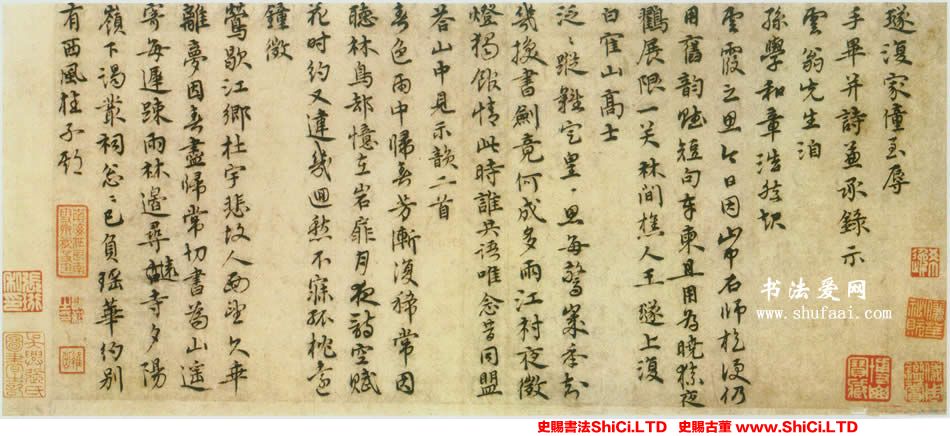 遂復家僮至辱
手畢并詩蒹承錄示
雲翁先生洎
孫學和章浩然切
雲霞之思今日因山中右師杞便仍
用舊韵賦短句奉柬且用為曉猿夜
鶴展限一关林間樵人王遂上復
白雀山高士
泛泛蹤難定皇皇思每驚策
幾換書劍竟何成多雨江村夜微
燈獨館情此時誰共語唯念昔同盟
答山中見示韻二首
春色雨中歸春芳漸復稀常因
聽林鳥却憶在岩扉月夜詩空賦
花時約又違幾迴愁不寐孤桃
鐘微
鶯歇江鄉杜宇悲故人西望久
離夢因春盡歸常切書為山遥
寄每遲踈雨林邉尋遠寺夕陽
嶺下謁叢祠忩忩已負瑶華約别
有西風桂子期
书法爱网
www.shufaai.com
史賜書法ShiCi.LTD 史賜古董 www.ShiCi.LTD